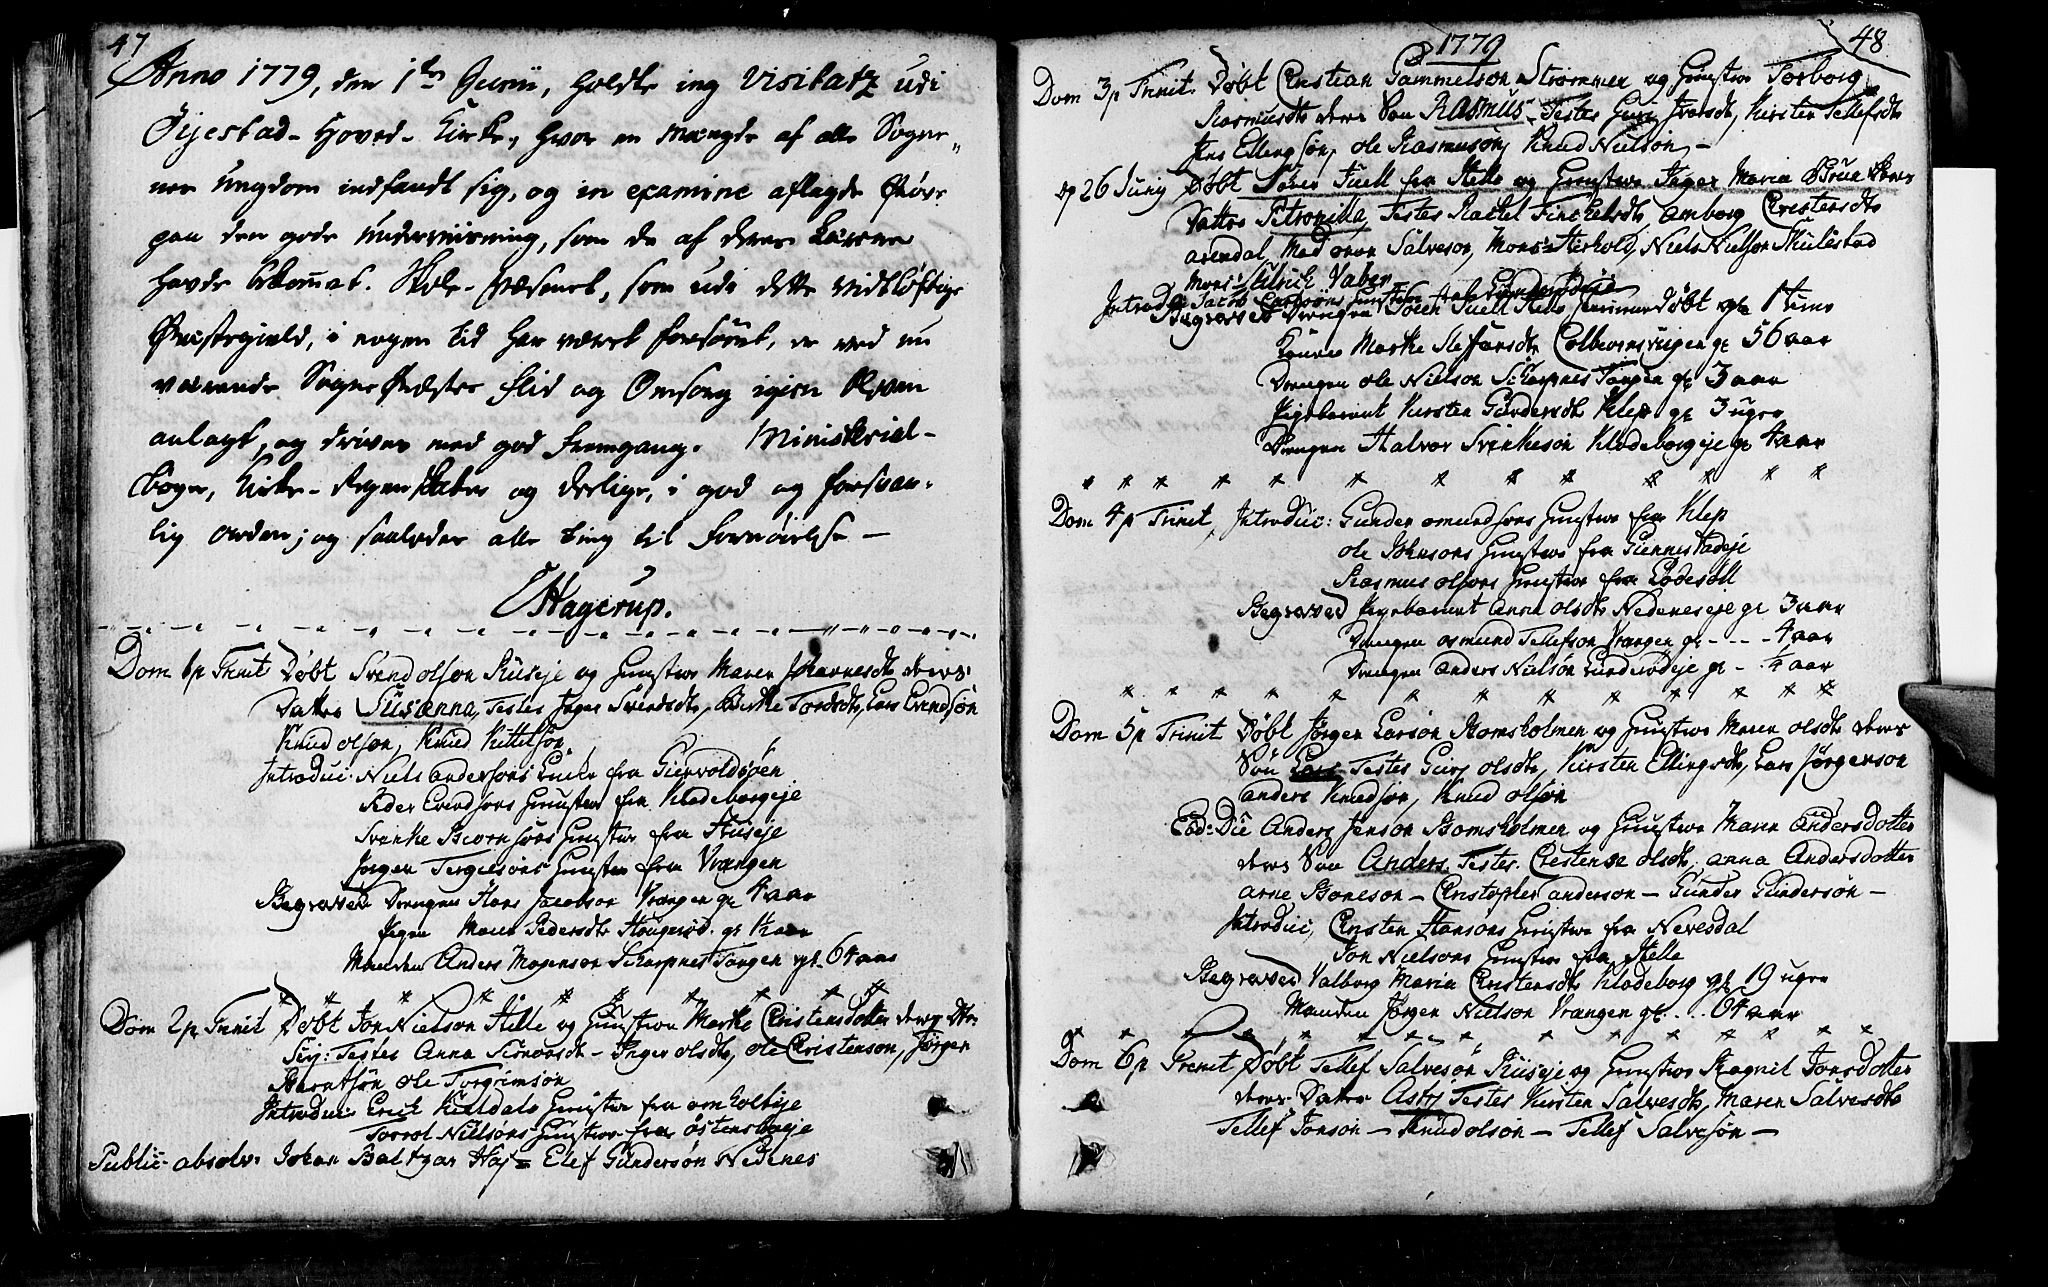 47
Anno 1779, den 1ten Junii, holdte ieg Visitatz udi
Øijestad-Hoved-Kirke, hvor en Mængde af alle Sogne„
nes Ungdom indfandt sig, og in examine aflagde Prøve
paa den gode Underviisning, som de af deres Lærere
havde bekommet. Skole-Væsenet, som udi dette vidtløftige
Præstegield, i nogen tid har været forsømt, er ved nu
værende Sogne Præstes flid og Omsorg igien
anlagt, og drives med god fremgang. Ministerial-
bøger, Kirke-Regenskaber og deslige, i god og forsvar-
lig orden; og saaledes alle ting til fornøielse —
Hagerup.
Dom 1 p Trinit Døbt Svend olsøn Riiseje og Hustrue Maren deres
Datter Susanna, Testes Inger Svendsdt, Birthe Tordsdt, Lars Evendsøn
Knud olsøn, Knud Kittelsøn
Introduc: Niels andersøns Enke fra Giervoldsøen
Peder Evendsøns Hustrue fra Klodeborgeje
Svenke Biørnsøns Hustrue fra Huseje
Jørgen Tergiesøns Hustrue fra Vrængen
Begravet Drengen Hans Jacobsøn Vrængen gl 4 aar
Pigen Maren Pedersdt Haugerød gl aar
Manden Anders Mogenson Scharpnes Tangen gl. 64 aar
Dom 2 p Trinit Døbt Jon Nielson Helle og Hustrue Marthe Christensdotter deres Dtr:
Siri: Testes Anna - Inger olsdt, ole Christenson, Jørgen
Berntsøn ole Torgrimsøn
Introduc: Erich Kieldals Hustrue fra omholteje
Torrol Nielsøns Hustrue fra østensboeje
Public: absolv: Johan Baltzar Haj = Elef Gundersøn Nedenes
1779
48
Dom 3 p Trinit. Døbt Christian Gammelson Strømmen og Hustrue Torborg
Rasmusdt deres Søn Rasmus - Testes Guri Iversdt, Kirsten Tellefsdt
Jens Ellengsøn, ole Rasmusøn, Knud Nielson, —
26 Junij Døbt Søren Juell fra Helle og Hustrue Inger Maria Bruu deres
Datter Petronilla, Testes Rachel, amborg Christensdt
arendal, Mad Salveson, Mons= Herhold, Niels Nielson
Mons: Ulrich Vaber
Introduc: Jacob Hustrue fra Lunderødeje
Begravet Drengen Søren Juell Helle hjemmedøbt gl 1 time
Konen Marthe Steffansdt, Colbiørnsvigen gl 56 aar
Drengen ole Nielson Scharpnes Tangen gl 3 aar
Pigebarnet Kirsten Gundersdt Klep gl 3 uger
Drengen Halvor Svenkesøn Klodeborgeje gl 4 aar
Dom 4 p Trinit, Introduc: Gunder omundsøns Hustrue fra Klep
ole Johnsøns Hustrue fra Giennestadeje
Rasmus olsøns Hustrue fra Rødesdll
Begravet Pigebarnet Anna olsdt Nedeneseje gl 3 aar
Drengen osmund Tellefson Vrangen gl - - - 4 aar
Drengen anders Nielsøn Lunderødeje gl - 1/4 aar
Dom 5 p Trinit Døbt Jørgen Larsøn Romsholmen og Hustrue Maren olsdt deres
Søn Lars Testes Guri olsdt, Kirsten Ellingsdt, Lars Jørgenson
anders Knudsøn, Knud olsøn
Eod: Die Anders Jenson Romsholmen og Hustrue Maren Andersdotter
deres Søn Anders, Testes. Christense olsdt, anna Andersdotter
arne Boneson — Christopher anderson — Gunder Gundersøn —
Introduc, Christen Hansøns Hustrue fra Nevesdal
Jon Nielsøns Hustrue fra Helle
Begravet Valborg Maria Christensdt Klodeborg gl 19 uger
Manden Jørgen Nielson Vrængen gl . . . 64 aar
Dom 6 p Trinit, Døbt Tellef Salvesøn Riiseje og Hustrue Ragnil Jonsdotter
deres Datter Astj Testes Kirsten Salvesdt, Maren Salvesdt
Tellef Jonson — Knud olson — Tellef Salvesøn —